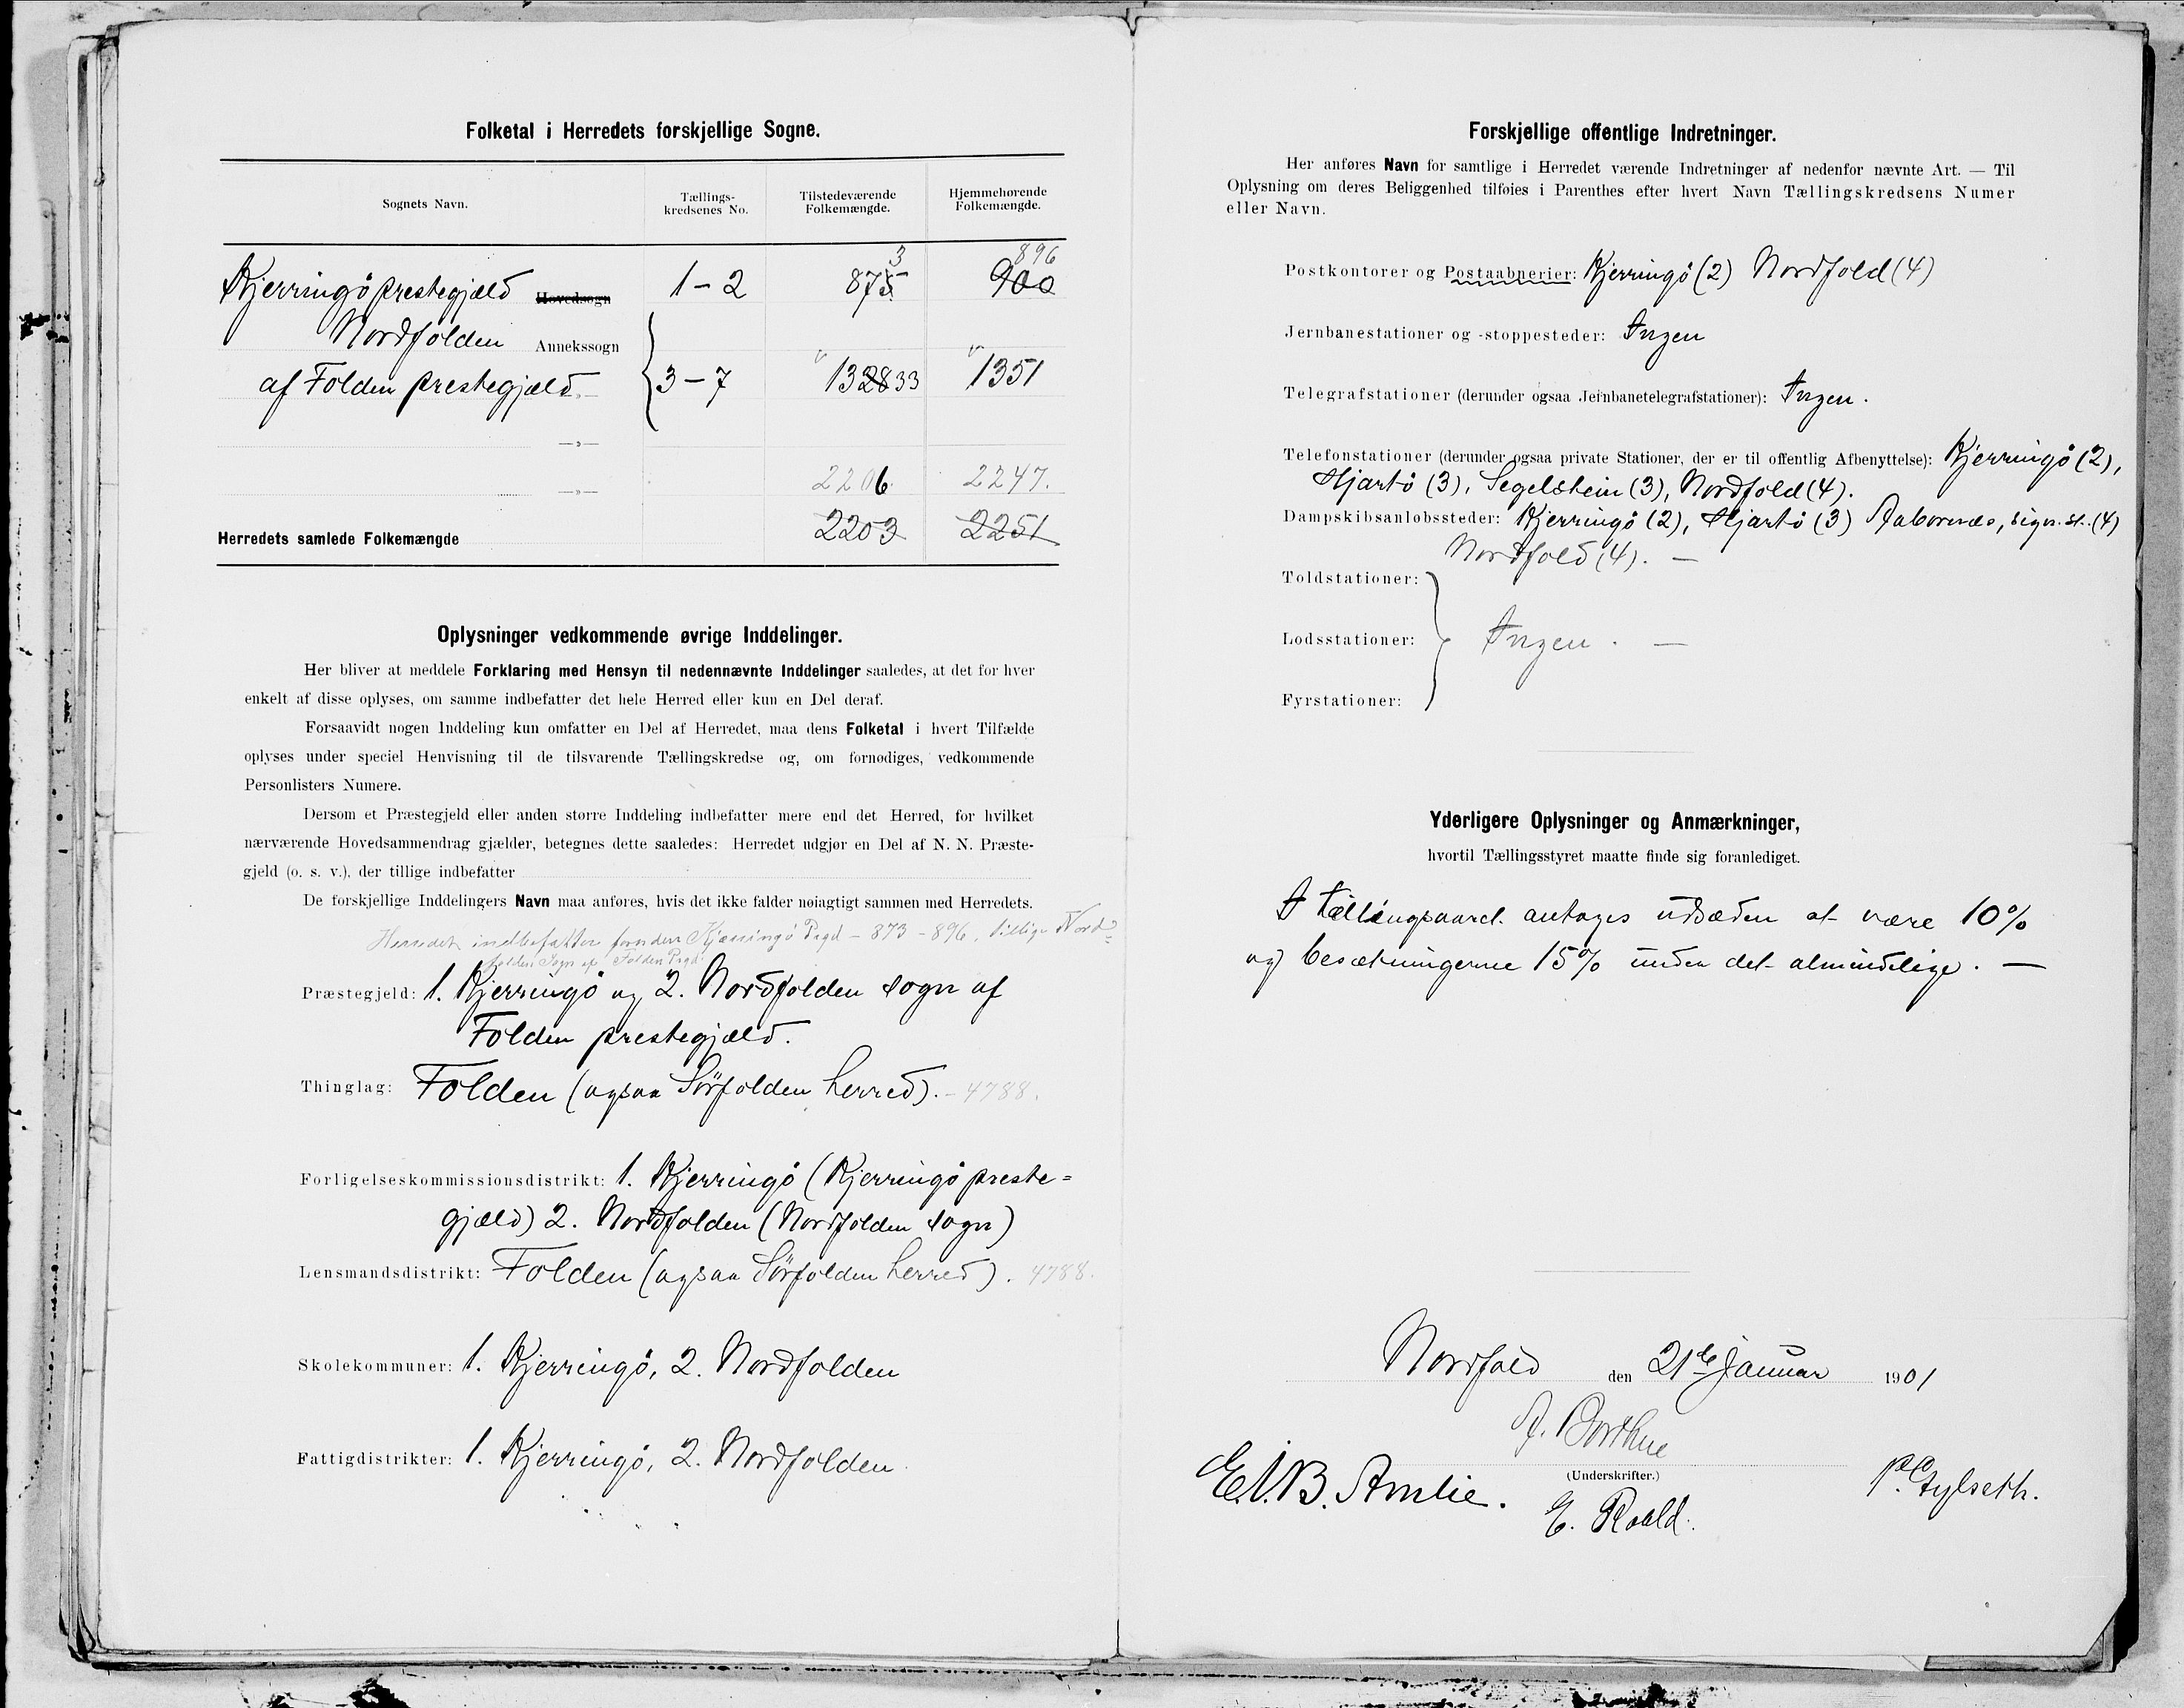 Folketal i Herredets forskjellige Sogne.
Sognets Navn.
Tællings-
kredsenes No.
Tilstedeværende
Folkemængde.
Hjemmehørende
Folkemængde.
3 896
Kjerringö prestegjæld Hovedsogn 1-2 875 900
Nordfolden Annekssogn
af Folden prestegjæld —„— 3-7 132833 1351
—„—
2206 2247.
—„—
Herredets samlede Folkemængde 2203 2251
Oplysninger vedkommende øvrige Inddelinger.
Her bliver at meddele Forklaring med Hensyn til nedennævnte Inddelinger saaledes, at det for hver
enkelt af disse oplyses, om samme indbefatter det hele Herred eller kun en Del deraf.
Forsaavidt nogen Inddeling kun omfatter en Del af Herredet, maa dens Folketal i hvert Tilfælde
oplyses under speciel Henvisning til de tilsvarende Tællingskredse og, om fornødiges, vedkommende
Personlisters Numere.
Dersom et Præstegjeld eller anden større Inddeling indbefatter mere end det Herred, for hvilket
nærværende Hovedsammendrag gjælder, betegnes dette saaledes: Herredet udgjør en Del af N. N. Præste-
gjeld (o. s. v.), der tillige indbefatter
De forskjellige Inddelingers Navn maa anføres, hvis det ikke falder nøiagtigt sammen med Herredets.
Herredet indbefatter foruden Kjærringö Prgd - 873 - 896, tillige Nord=
folden Sogn af Folden Prgd.
Præstegjeld: 1. Kjerringö og 2. Nordfolden sogn af
Folden prestegjæld.
Thinglag: Folden (ogsaa Sörfolden herred). - 4788.
Forligelseskommissionsdistrikt: 1. Kjerringö (Kjerringö preste=
gjæld) 2. Nordfolden (Nordfolden sogn)
Lensmandsdistrikt: Folden (ogsaa Sörfolden herred). 4788.
Skolekommuner: 1. Kjerringö, 2. Nordfolden
Fattigdistrikter: 1. Kjerringö, 2. Nordfolden
Forskjellige offentlige Indretninger.
Her anføres Navn for samtlige i Herredet værende Indretninger af nedenfor nævnte Art. — Til
Oplysning om deres Beliggenhed tilføies i Parenthes efter hvert Navn Tællingskredsens Numer
eller Navn.
Postkontorer og Postaabnerier: Kjerringö (2) Nordfold (4)
Jernbanestationer og -stoppesteder: Ingen
Telegrafstationer (derunder ogsaa Jernbanetelegrafstationer): Ingen.
Telefonstationer (derunder ogsaa private Stationer, der er til offentlig Afbenyttelse): Kjerringö (2),
Hjartö (3), Segelstein (3), Nordfold (4).
Dampskibsanløbssteder: Kjerringö (2), Hjartö (3) sign. st. (4)
Nordfold (4). —
Toldstationer:
Lodsstationer: Ingen. —
Fyrstationer:
Yderligere Oplysninger og Anmærkninger,
hvortil Tællingsstyret maatte finde sig foranlediget.
I tællingsaaret antages udsæden at være 10%
og besætningerne 15% under det almindelige. —
Nordfold den 21de Januar 1901
(Underskrifter.)
E. Roald.